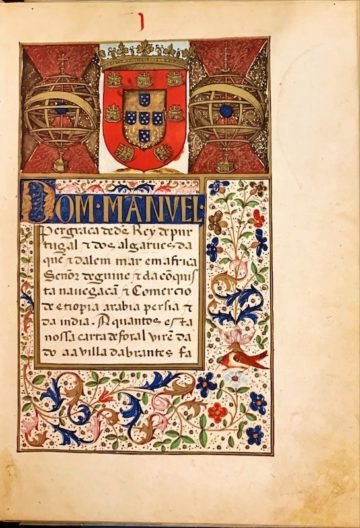 DOM·MANVEL·
Per graca de ds̃ Rey de pur
tugal ⁊ dos algarues da
quẽ ⁊ dalem mar em africa
Señor de guine ⁊ da cõquis
ta nauegacam ⁊ Comercio
de etiopia arabia persia ⁊
da india. A quantos esta
nossa carta de foral virẽ da
do aa villa dabrantes fa